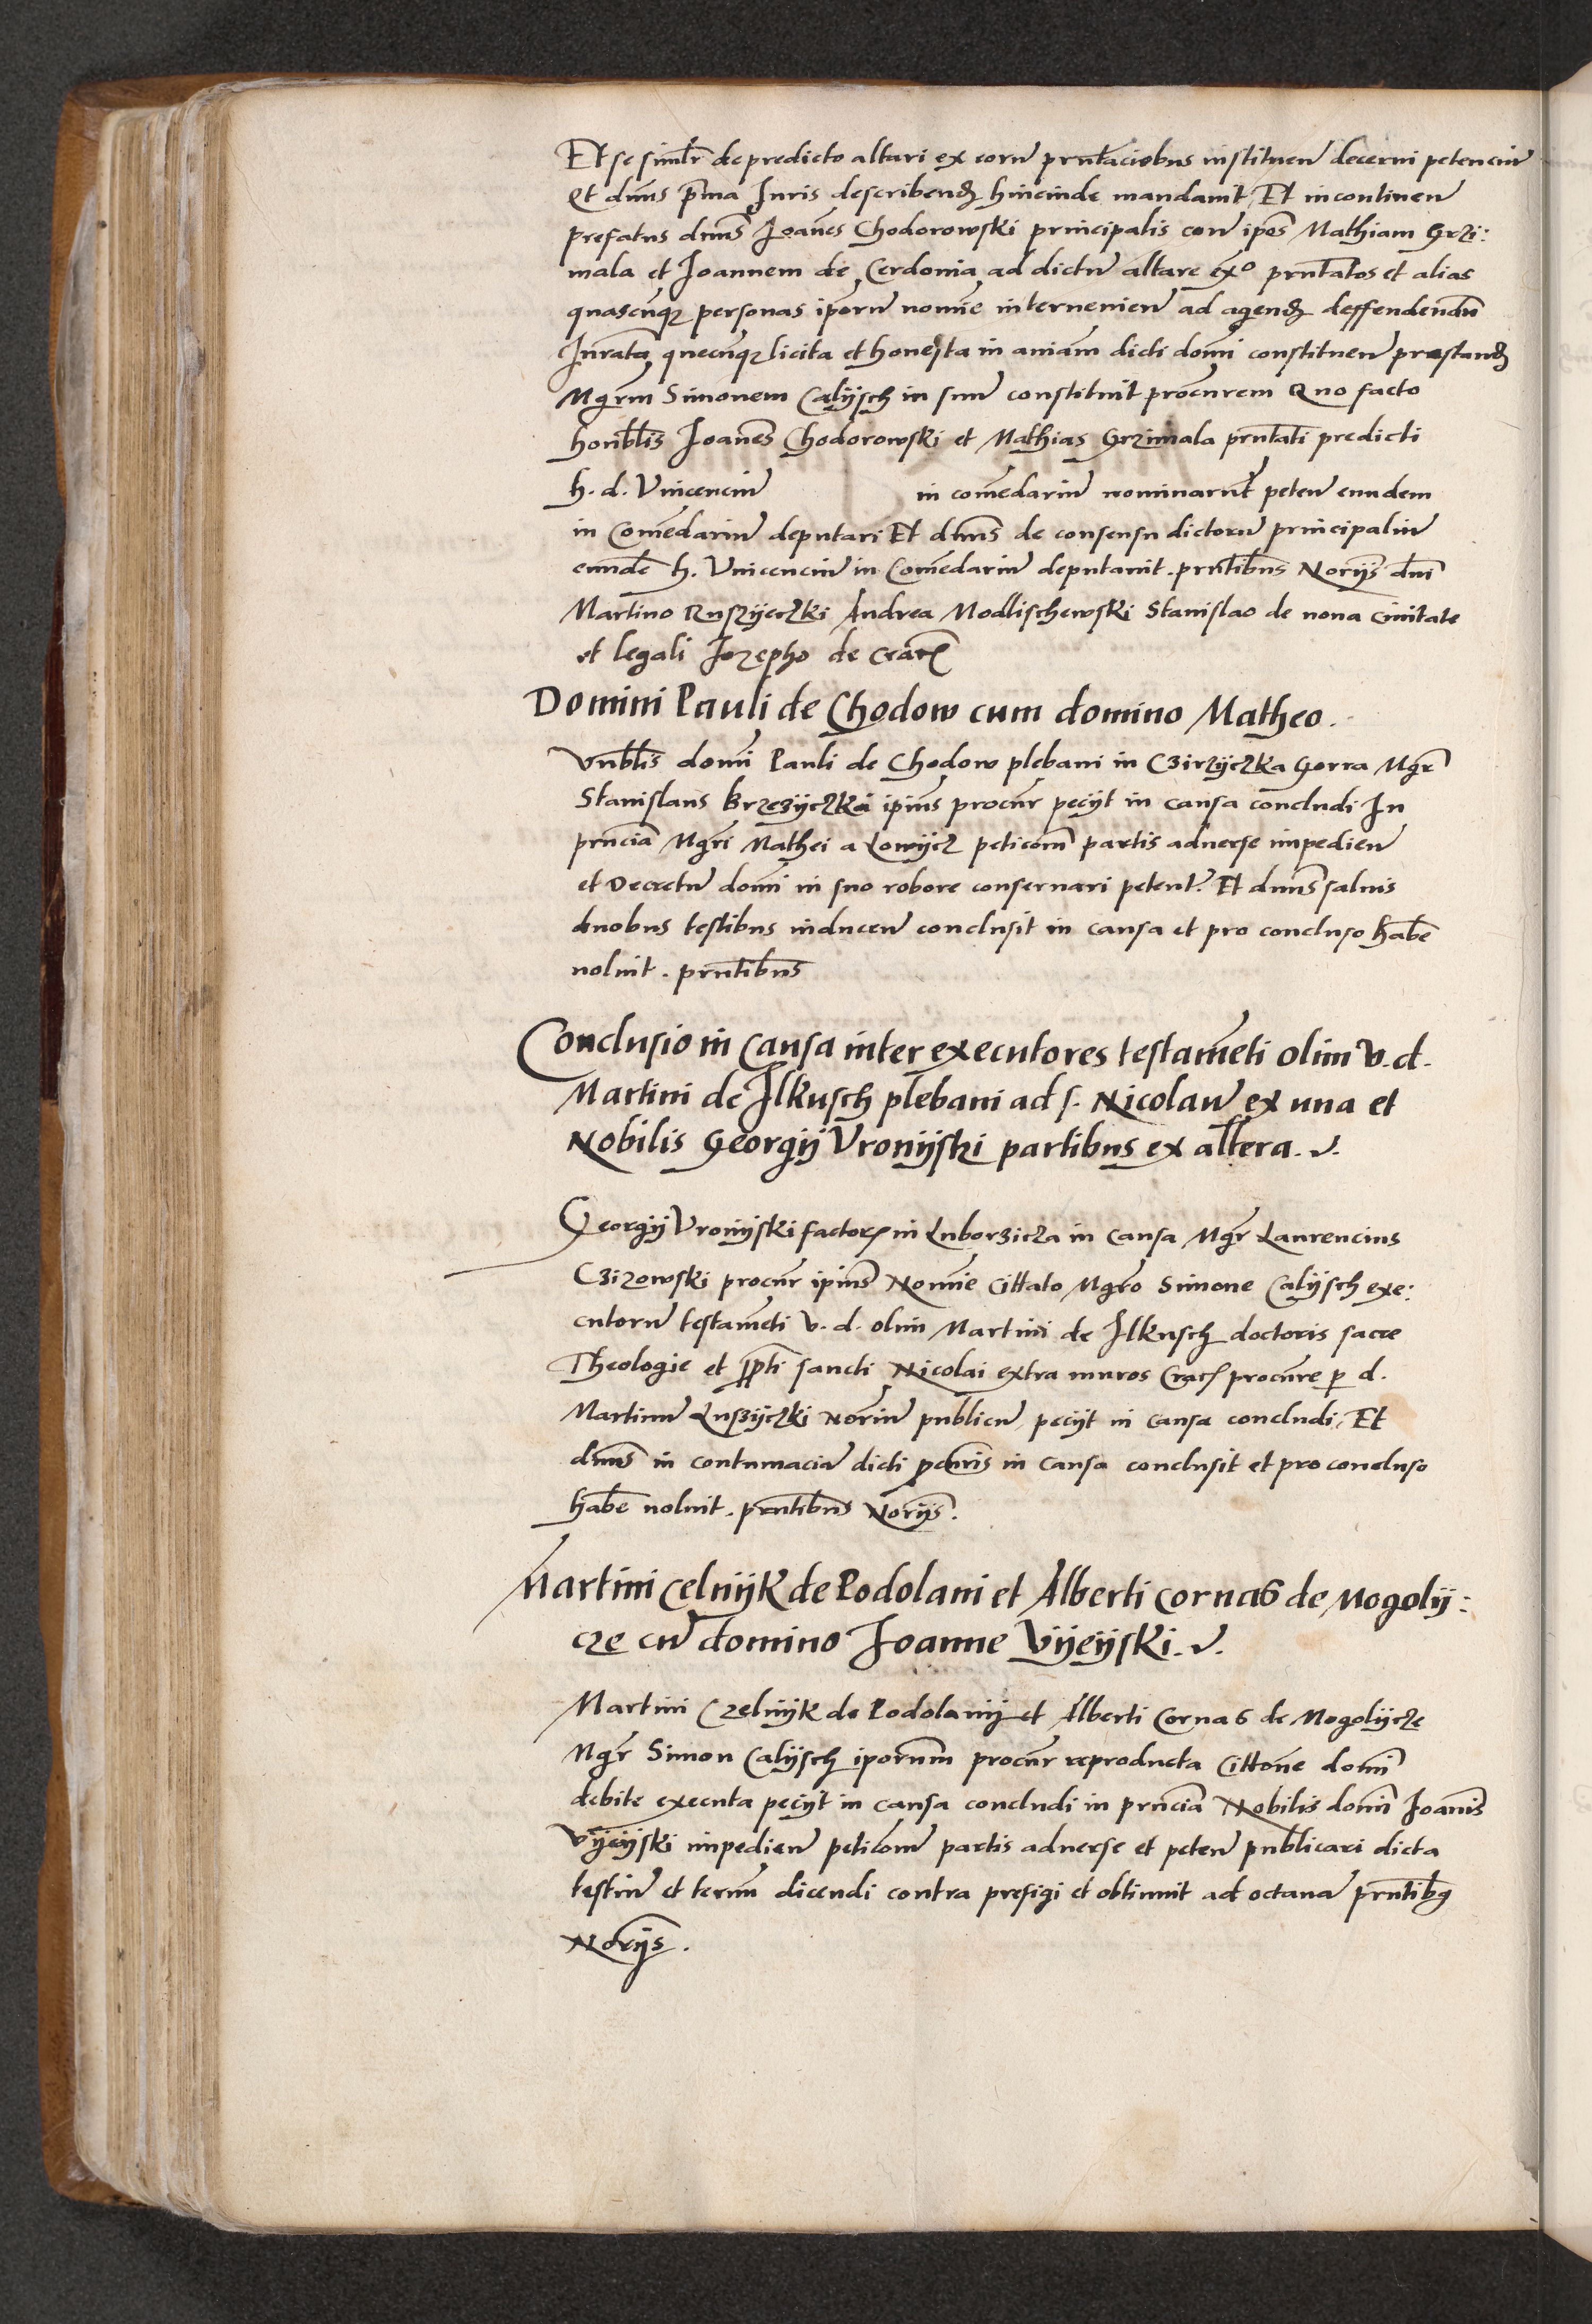 Et se siml̃r de predicto altari ex eorũ pr̃ntaciõbus instituen̄ decerni petenciũ
Et dñus p̃ma Juris describend̃ hincinde mandauit Et incontinen̄
prefatus dñus Joañes Chodorowski principalis cen̄ ip̃os Mathiam Grzi:
mala et Joannem de Cerdonia ad dictũ altare ex̃o pr̃ntatos et alias
quascũq3 personas ip̃orũ noĩe interuenien̄ ad agend̃ deffendendũ
Juratã quecũq3 licita et honesta in aniam̃ dicti domĩ constituen̄ prestand̃
Mgr̃m Simonem Calijsch in suũ constituit procũrem Quo facto
honb̃lis Joañes Chodorowski et Mathias Grzimala pr̃ntati predicti
h. d. Vincenciũ in com̃edariũ nominarũt peten̄ eundem
in Com̃edariũ deputari Et dñus de consensu dictorũ principaliũ
eundẽ h. Vincenciũ in Com̃edariũ deputauit. pr̃ntibus Norijs dñi
Martino Ruszijeczki Andrea Modlischewski Stanislao de noua Ciuitate
et legali Jozepho de Crac̃
Domini Pauli de Chodow cum domino Matheo.
Vnb̃lis domĩ Pauli de Chodow plebani in Czirzijczka Gorra Mgr̃
Stanislaus Brzezijczki ipius procũr pecijt in causa concludi In
pr̃nciã Mgr̃i Mathei a Lowijcz peticom̃ partis aduerse impedien̄
et Decretũ domĩ in suo robore conseruari petent̃. Et dñus saluis
duobus testibus inducen̄ conclusit in causa et pro concluso hab̃e
uoluit. pr̃ntibus
Conclusio in Causa inter executores testam̃eti olim v. d.
Martini de Ilkusch plebani ad s. Nicolaũ ex una et
Nobilis Georgij Vronijski partibus ex altera. v.
Georgij Vronijski factor̃ in Luborzicza in causa Mgr̃ Laurencius
Czizowski procũr ipius Noĩe Cittato Mgr̃o Simone Calijsch exe:
cutorũ testam̃eti v. d. olim Martini de Ilkusch doctoris sacre
Theologie et p̃pti sancti Nicolai extra muros Crac̃ procũre p d.
Martinũ Luszijczki Norĩũ publicũ pecijt in causa concludi Et
dñus in contumaciã dicti p̃curis in causa conclusit et pro concluso
hab̃e uoluit. pr̃ntibus Norijs.
Martini Celnijk de Podolani et Alberti Cornas de Mogolij:
cze cũ domino Joanne Vijeijski. v.
Martini Czelnijk de Podolanij et Alberti Cornas de Mogolijcze
Mgr̃ Simon Calijsch iporum procũr reproducta Cittõne domĩ
debite executa pecijt in causa concludi in pr̃nciã Nobilis domĩ Joanĩs
Vijeijski impedien̄ peticõm partis aduerse et peten̄ publicari dicta
testiũ et termũ dicendi contra prefigi et obtinuit ad octauã pr̃ntib9
Norijs.